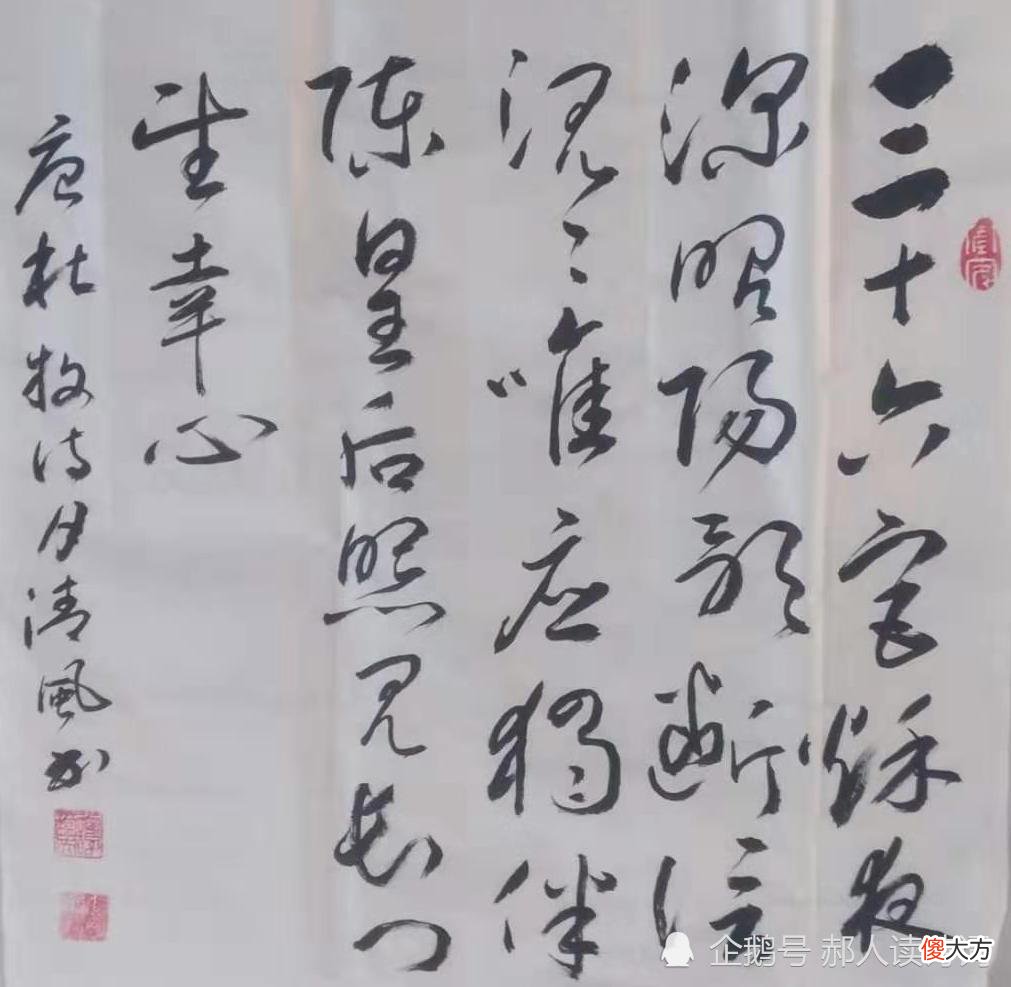 三十六宫秋夜
深昭阳歌断信
沉々唯应独伴
陈皇后照见长门
望幸心
唐杜牧诗月清风书
企鹅号 郝人读
傻大方